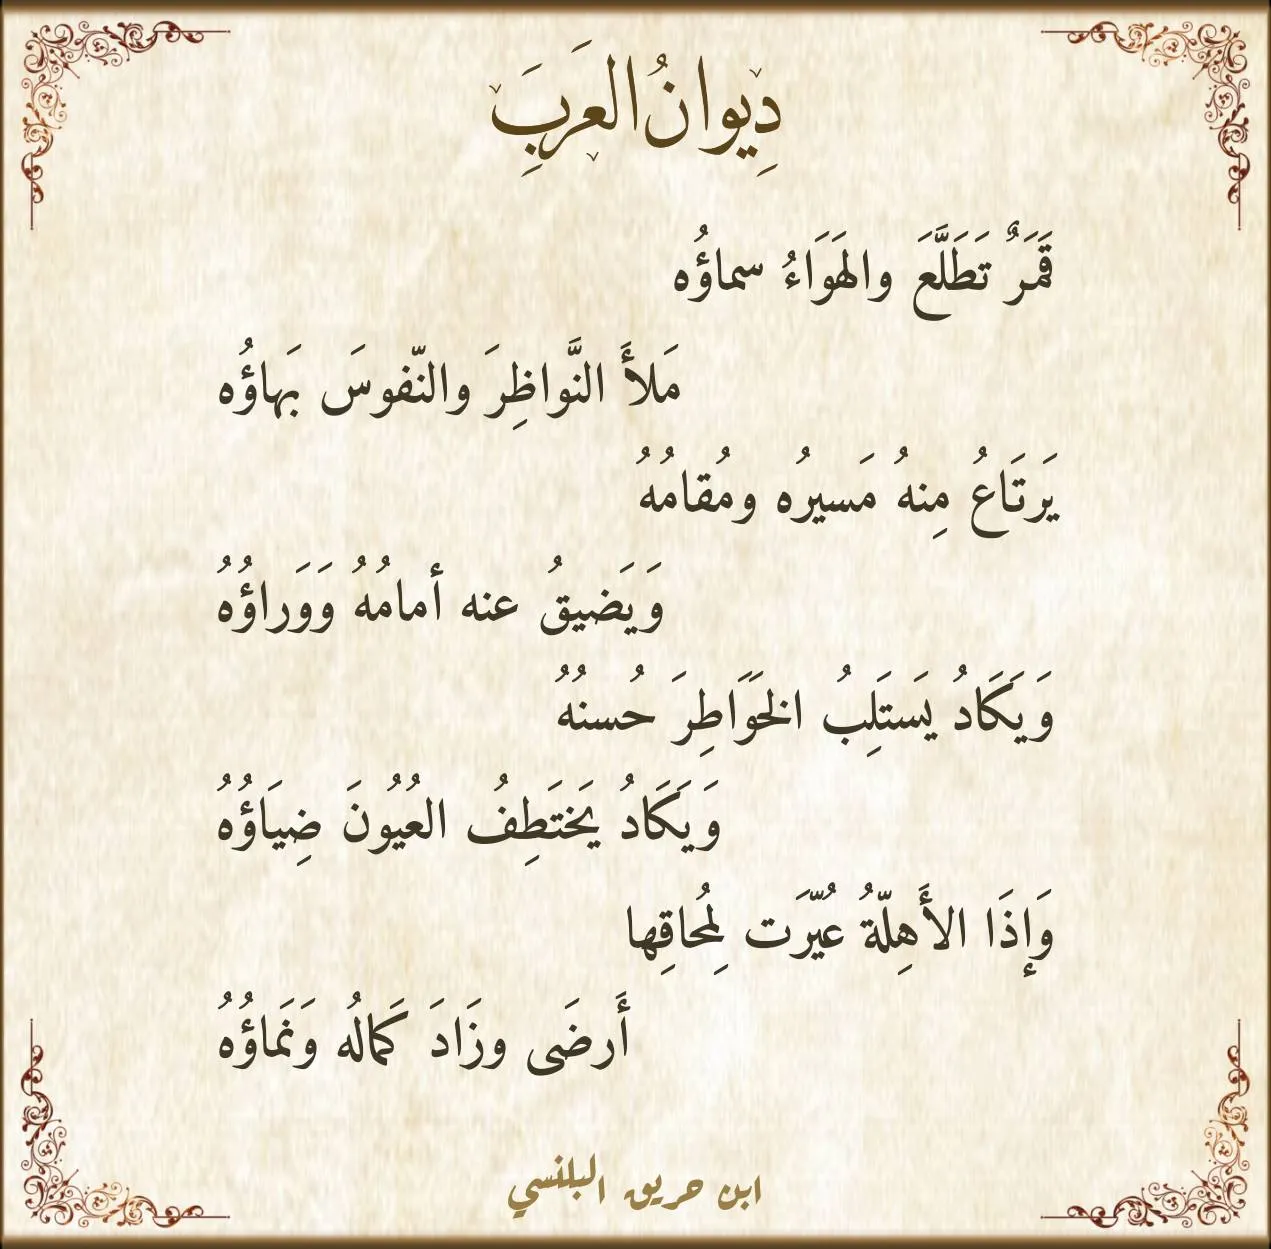 دِيوانُ العَرَبِ
قَمَرٌ تَطَلَّعَ والهَوَاءُ سماؤُه
مَلأَ النَّواظِرَ والنّفوسَ بَهاؤُه
يَرتَاعُ مِنهُ مَسيرُه ومُقامُهُ
وَيَضيقُ عنه أمامُهُ وَوَراؤُهُ
وَيَكَادُ يَستَلِبُ الخَوَاطِرَ حُسنُهُ
وَيَكَادُ يَختَطِفُ العُيُونَ ضِيَاؤُهُ
وَإِذَا الأَهِلّةُ عُيّرَت لِمُحاقِها
أَرضَى وزَادَ كَمالُه وَنَماؤُهُ
ابن حريق البلنسي